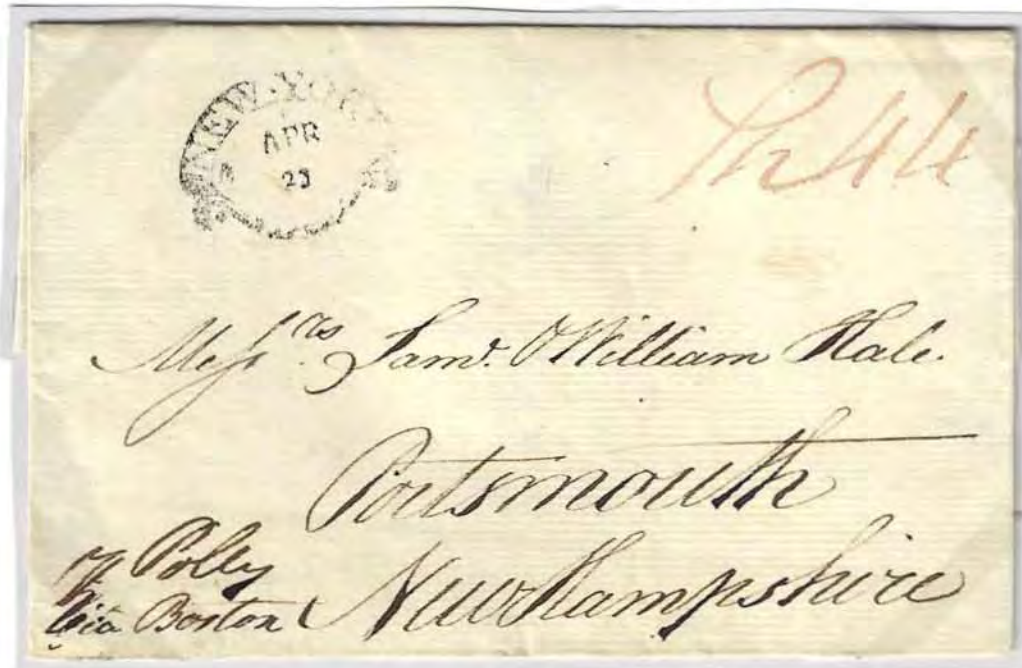 NEW-YORK
APR
23
Sh 44
Mess.rs Saml. & William Hale.
Portsmouth
New Hampshire
pr Polly
via Boston